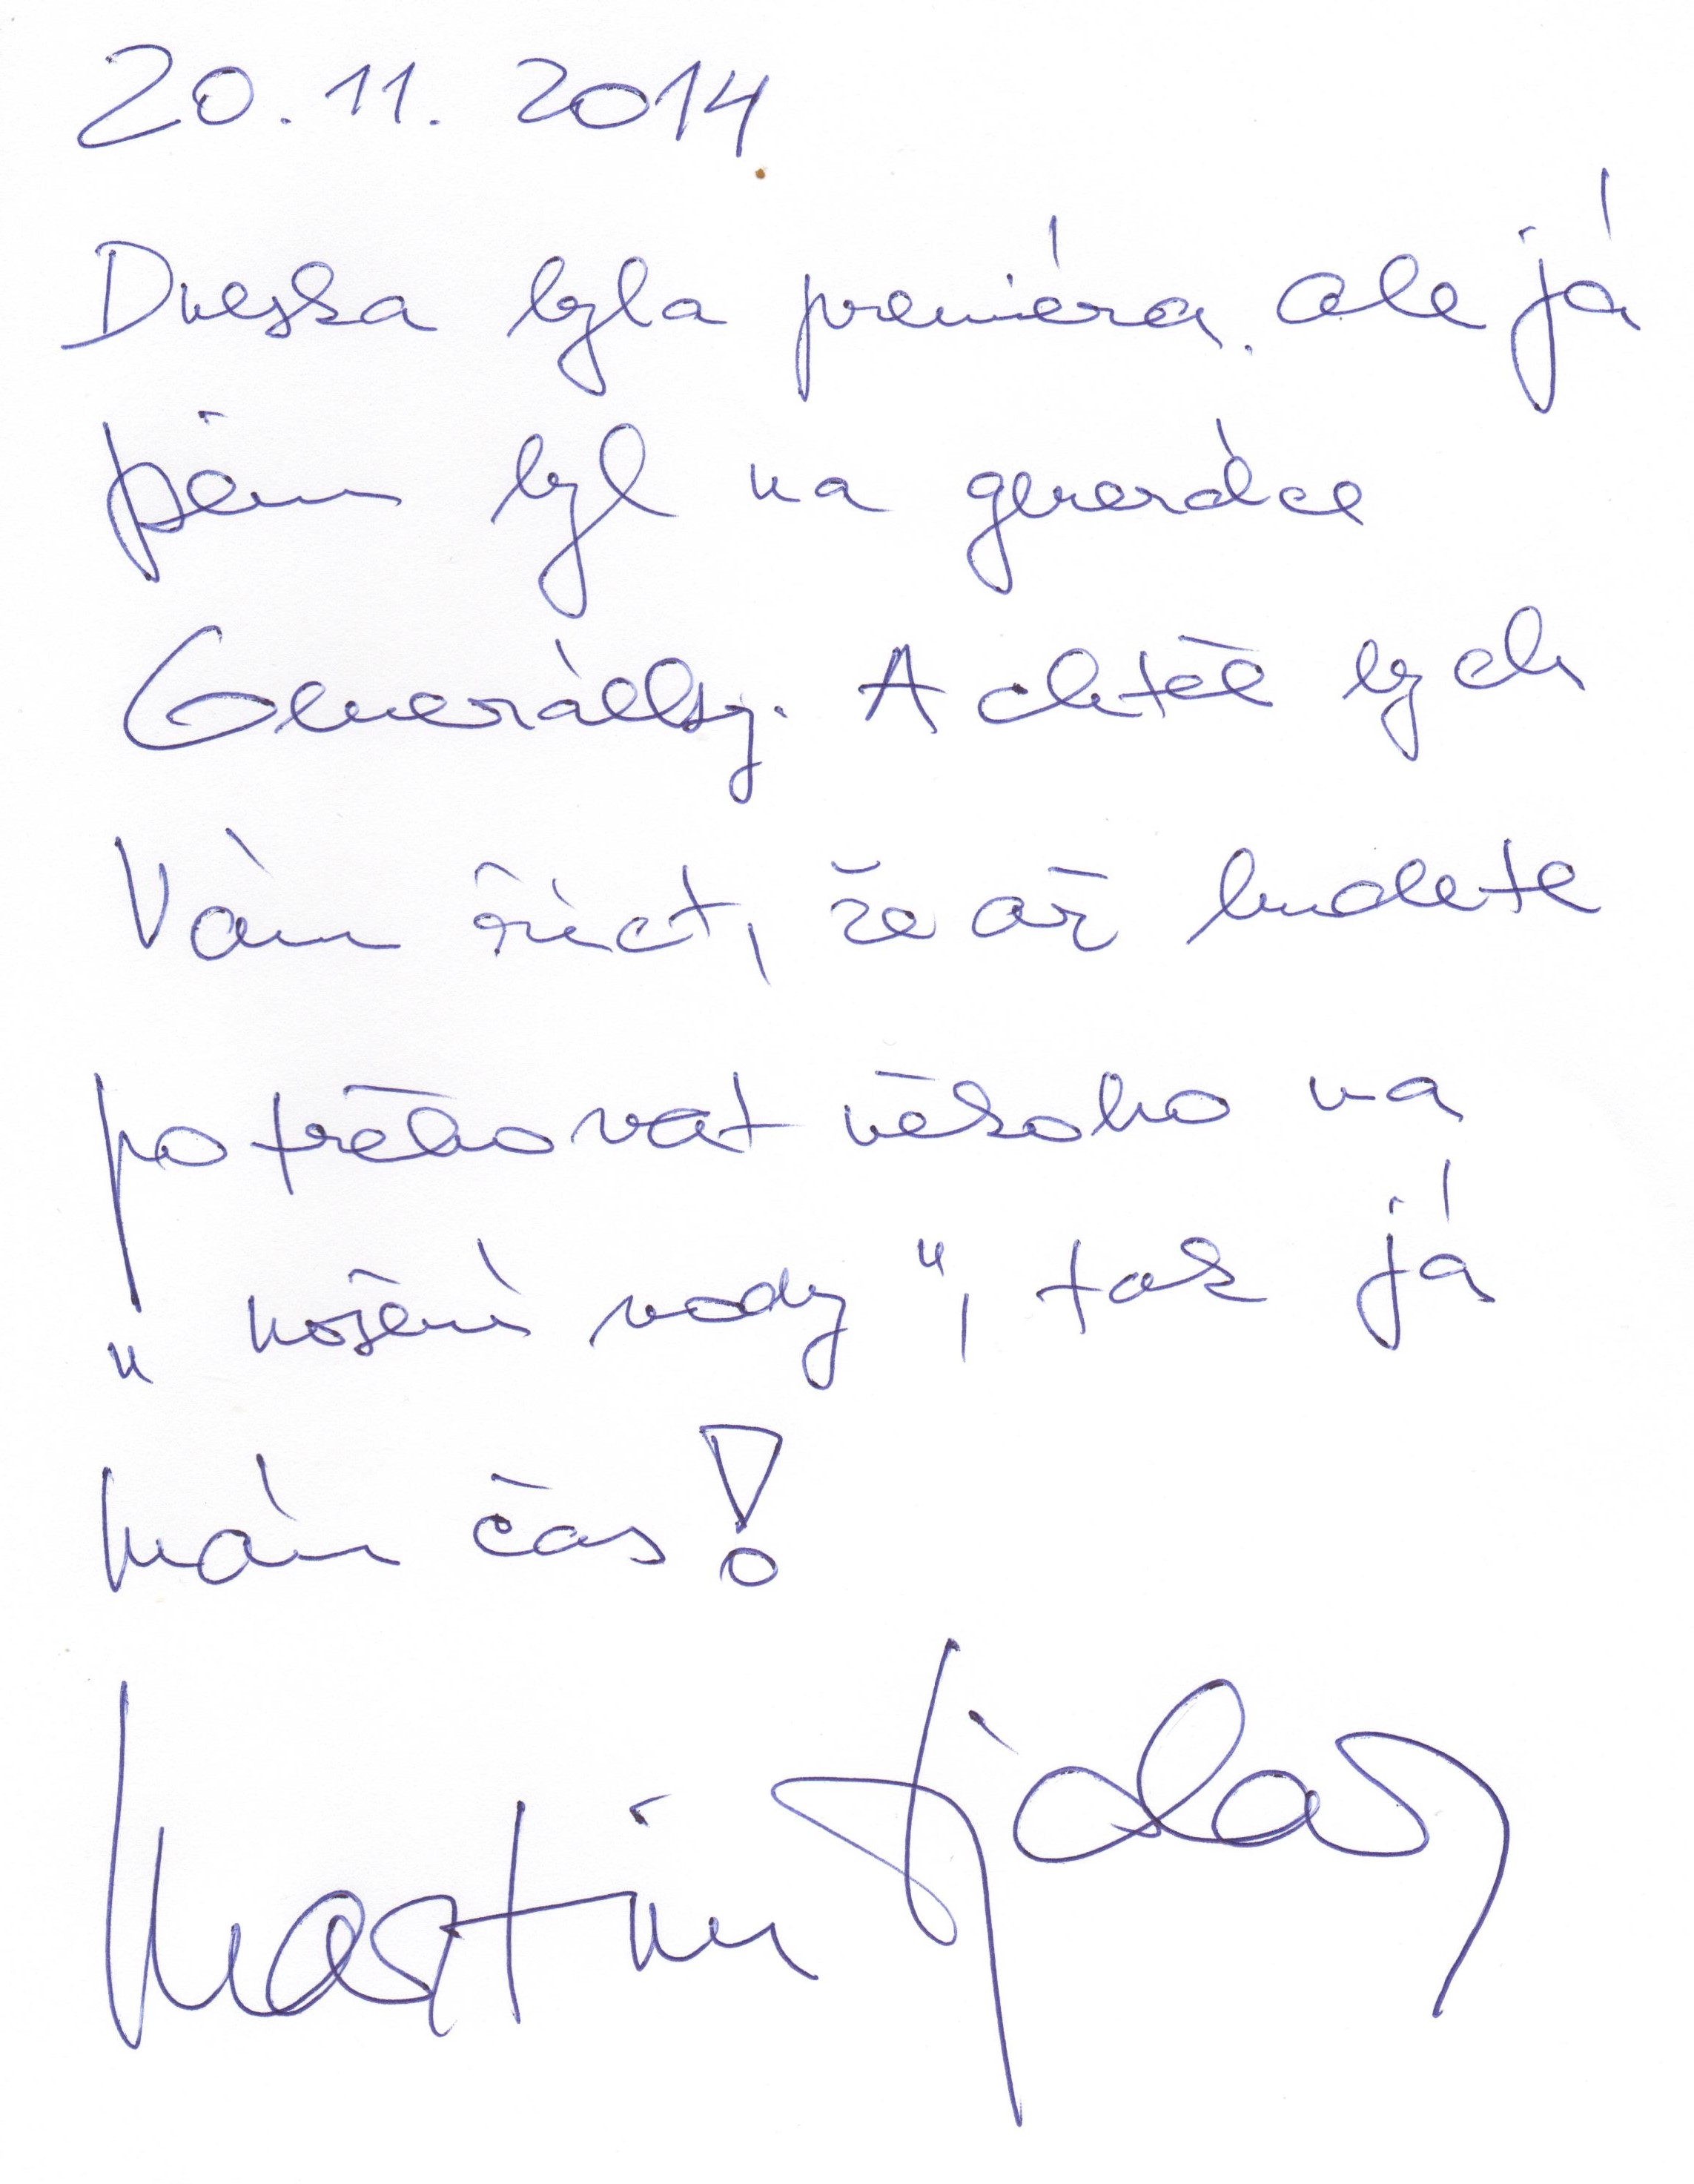 20. 11. 2014
Dneska byla premiéra. ale já
jsem byl na generálce
Generálky. A chtěl bych
Vám říct, že až budete
potřebovat někoho na
„nošení vody“, tak já
mám čas!
Martin